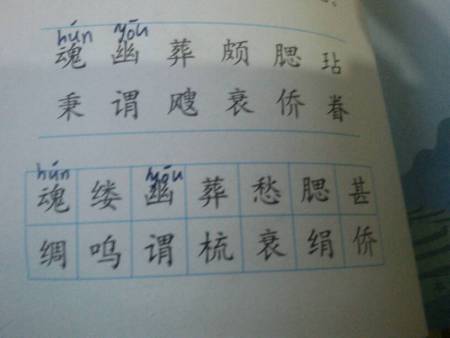 hún yōu
魂 幽 葬 颇 腮 玷
秉 谓 飕 衰 侨 眷
hún yōu
魂 缕 幽 葬 愁 腮 甚
绸 呜 谓 梳 衰 绢 侨